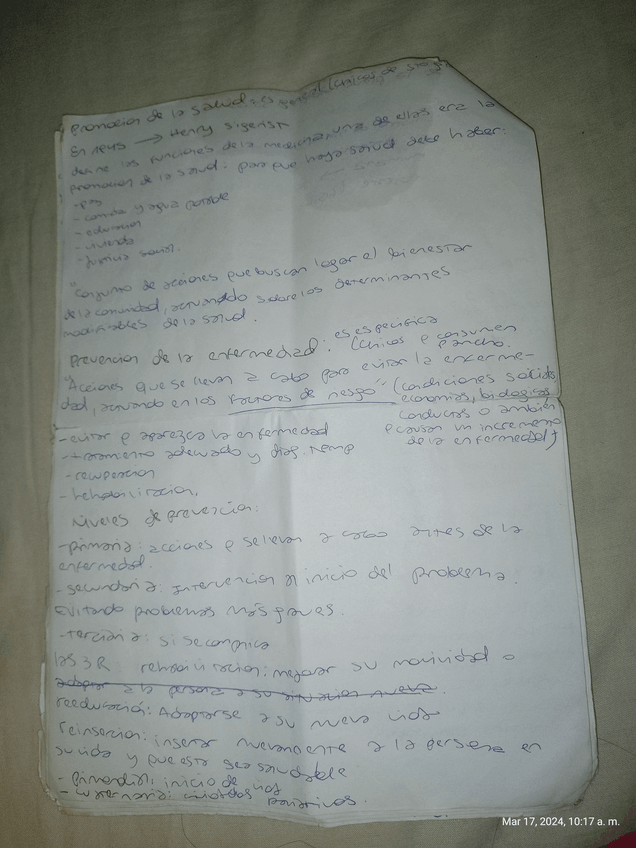 Promocion de la salud: es general (chicos de
En 1945 → Henry Sigerist
define las funciones de la medicina, una de ellas era la
promocion de la salud: para que haya salud debe haber:
- paz
- comida y agua potable
- educacion
- vivienda
- Justicia social.
"Conjunto de acciones que buscan lograr el bienestar
de la comunidad, actuando sobre los determinantes
modificables de la salud.
Prevencion de la enfermedad: es especifica
(chicos q consumen
pancho.
"Acciones que se llevan a cabo para evitar la enferme-
dad, actuando en los factores de riesgo" (condiciones
economicas, biologicas,
conductas o ambien
q causan un incremento
de la enfermedad)
- evitar q aparezca la enfermedad
- tratamiento adecuado y diag. temp
- recuperacion
- Rehabilitacion.
Niveles de prevencion:
- primaria: acciones q se llevan a cabo antes de la
enfermedad.
- secundaria: Intervencion al inicio del problema.
Evitando problemas más graves.
- terciaria: si se complica
las 3R rehabilitacion: mejorar su movilidad o
adaptar a la persona a su situacion nueva.
reeducación: Adaptarse a su nueva vida
reinsercion: insertar nuevamente a la persona en
su vida y que esta sea saludable
- primordial: inicio de vida
- cuaternaria: cuidados paliativos.
Mar 17, 2024, 10:17 a. m.